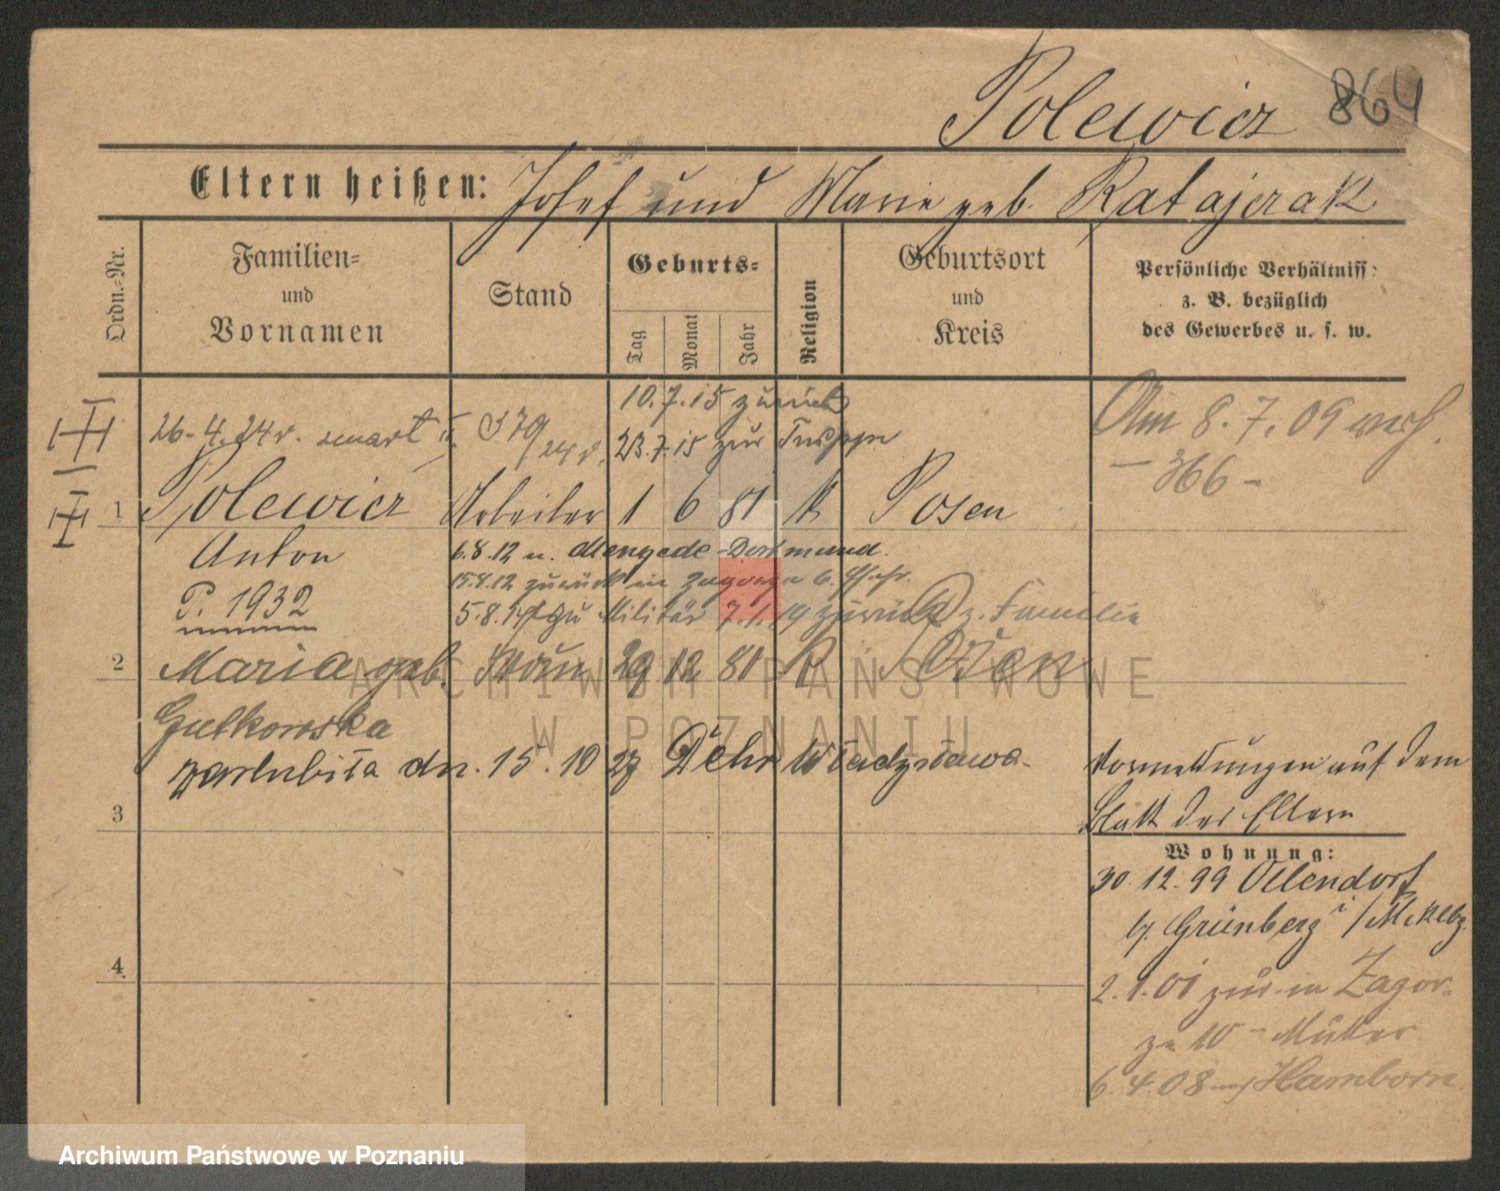 Polewicz 864
Eltern heißen: Josef und Marie geb. Ratajczak
Ordn.-Nr.
Familien-
und
Vornamen
Stand
Geburts-
Tag
Monat
Jahr
Religion
Geburtsort
und
Kreis
Persönliche Verhältniss:
z. B. bezüglich
des Gewerbes u. s. w.
10.7.15 zurück
26.4.24 r. zmarł
23.7.15 zur Truppe
Am 8.7.09 verh.
- 366 -
1 Polewicz Arbeiter 1 6 81 K Posen
Anton
6.8.12 n. Mengede-Dortmund.
15.8.12 zurück in
P. 1932
5.8.14 zu Militär 7.1.19 zurück z. Familie
2 Maria geb. Frau 29 12 81 K Posen
Gutkowska
zaślubiła dn. 15.10 27 Dehr Władysława.
Vormerkungen auf dem
Blatt der Eltern
3
Wohnung:
30.12.99 Ollendorf
b/ Grünberg i/Meklbg.
4
2.1.01 zur. in Zagor-
ze 10 - Mutter
6.4.08 Hamborn.
ARCHIWUM PAŃSTWOWE
W POZNANIU
Archiwum Państwowe w Poznaniu